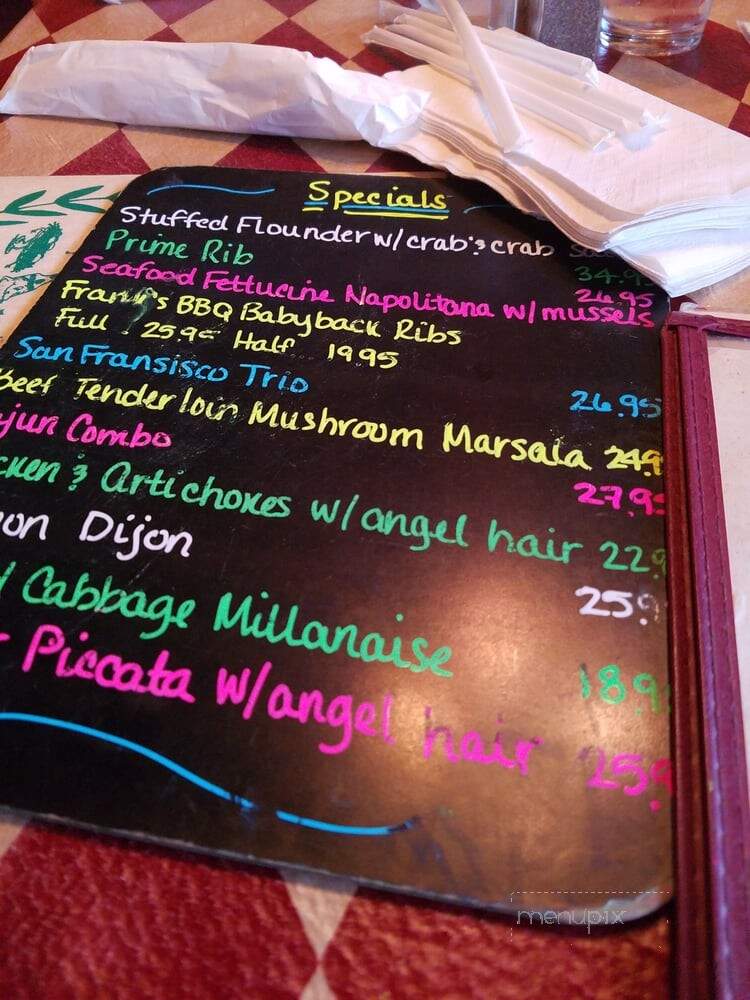 Specials
Stuffed Flounder w/ crab & crab
Prime Rib 34.95
Seafood Fettucine Napolitana w/ mussels 26.95
BBQ Babyback Ribs
Full 25.95 Half 19.95
San Fransisco Trio 26.95
Beef Tenderloin Mushroom Marsala 24.9
jun Combo 27.95
cken & Artichokes w/ angel hair 22.9
on Dijon 25.9
Cabbage Millanaise 18.9
Piccata w/ angel hair 25.9
menupix